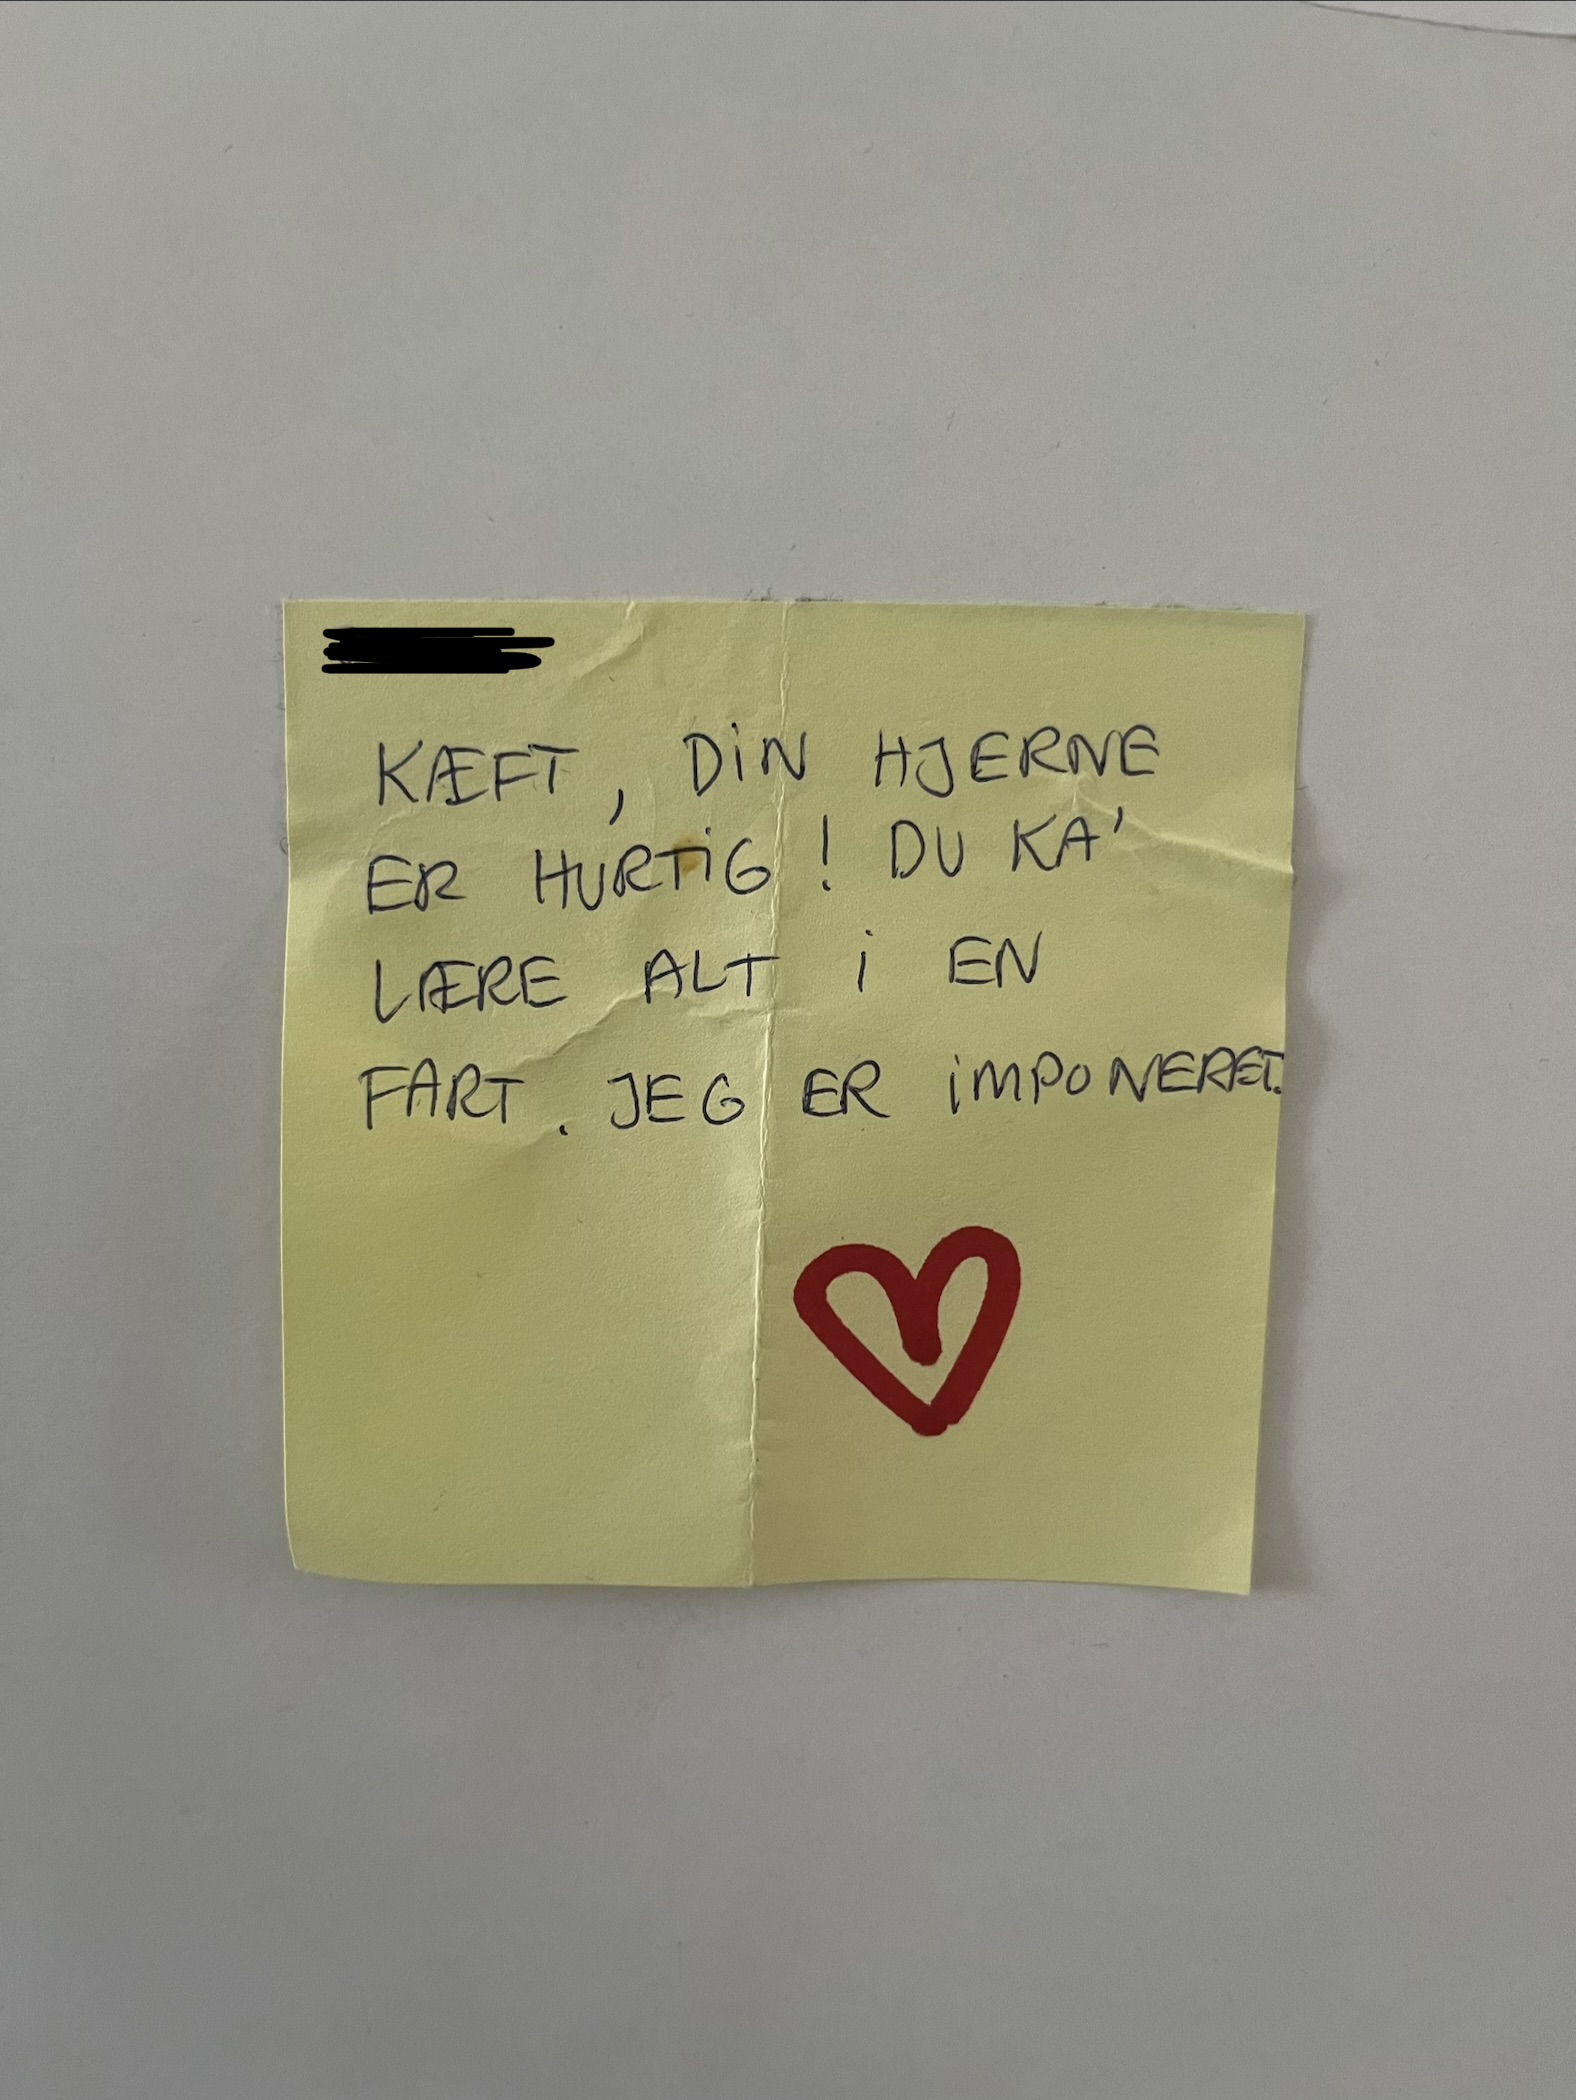 KÆFT, DiN HJERNE
ER HURTiG! DU KA'
LÆRE ALT i EN
FART. JEG ER iMPONERET.